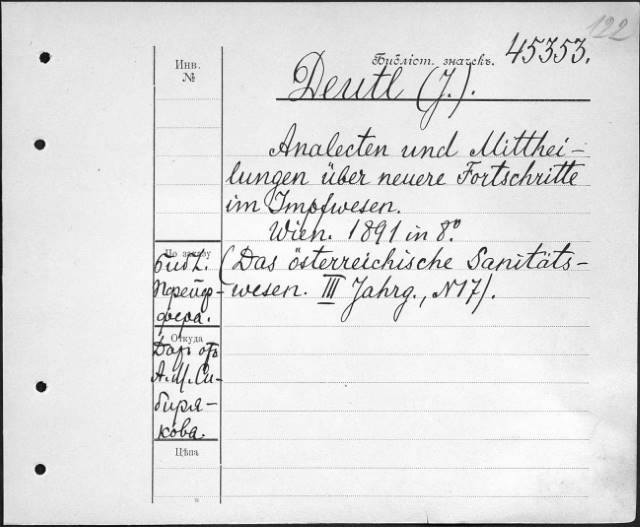 122
Инв.
№
Библіот. значекъ. 45353.
Deutl (J.).
Analecten und Mitthei-
lungen über neuere Fortschritte
im Impfwesen.
Wien. 1891 in 8º.
(Das österreichische Sanitäts-
wesen. III Jahrg., N 17).
По заказу
Библ.
Пфейф-
фера.
Откуда
Даръ отъ
А. М. Си-
биря-
кова.
Цѣна